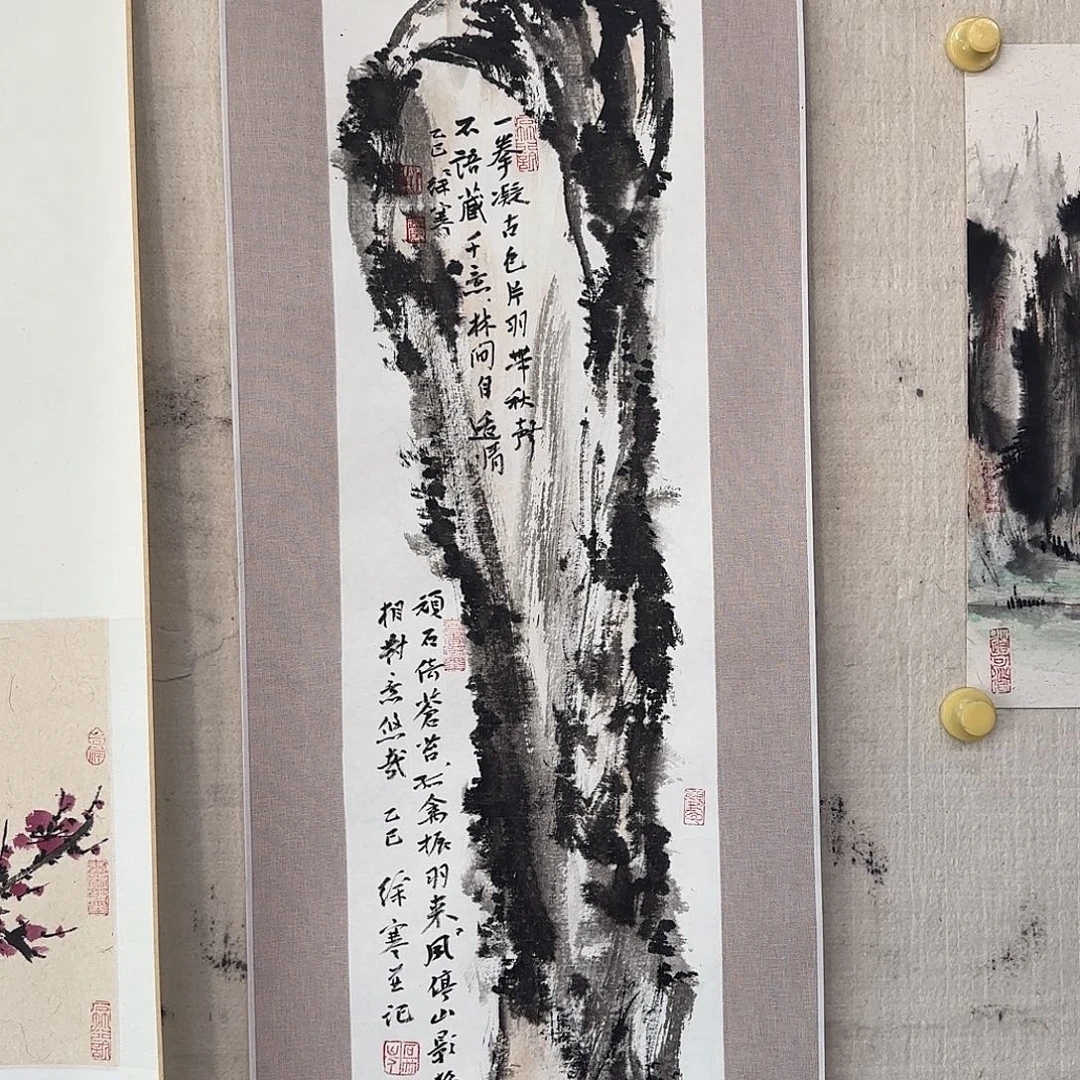 一拳凝古色片羽带秋声
不语藏千意林间自适情
乙巳徐寒
顽石倚苍苔孤禽振羽来风停山影静
相对意悠哉 乙巳 徐寒并记